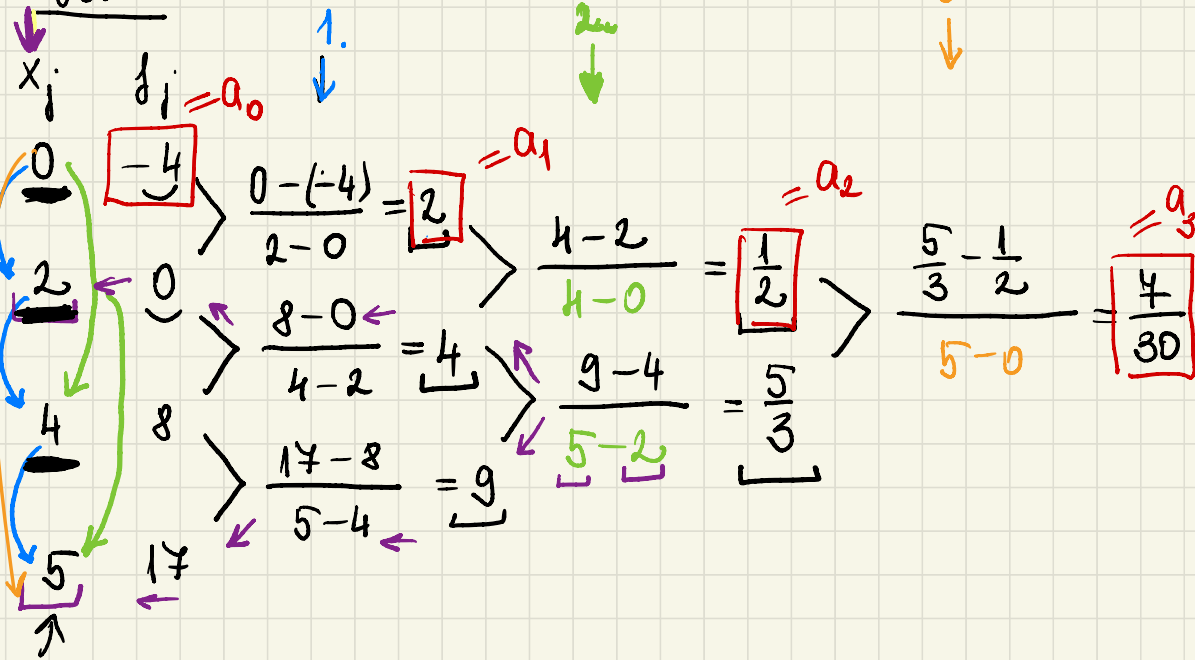 1. 2.
x_j f_j = a_0
0 -4
(0-(-4))/(2-0) = 2 = a_1
2 0
(4-2)/(4-0) = 1/2 = a_2
(8-0)/(4-2) = 4
(5/3 - 1/2)/(5-0) = 7/30 = a_3
4 8
(9-4)/(5-2) = 5/3
(17-8)/(5-4) = 9
5 17